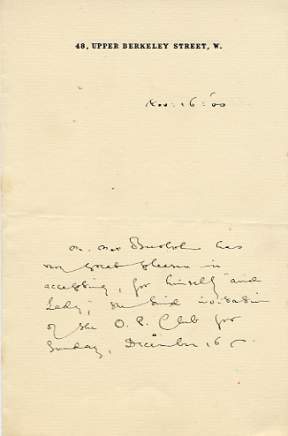 48, UPPER BERKELEY STREET, W.
Nov: 16: '00
Mr. Max Beerbohm has
very great pleasure in
accepting, for himself "and
Lady", the kind invitation
of the O. P. Club for
Sunday, December 16